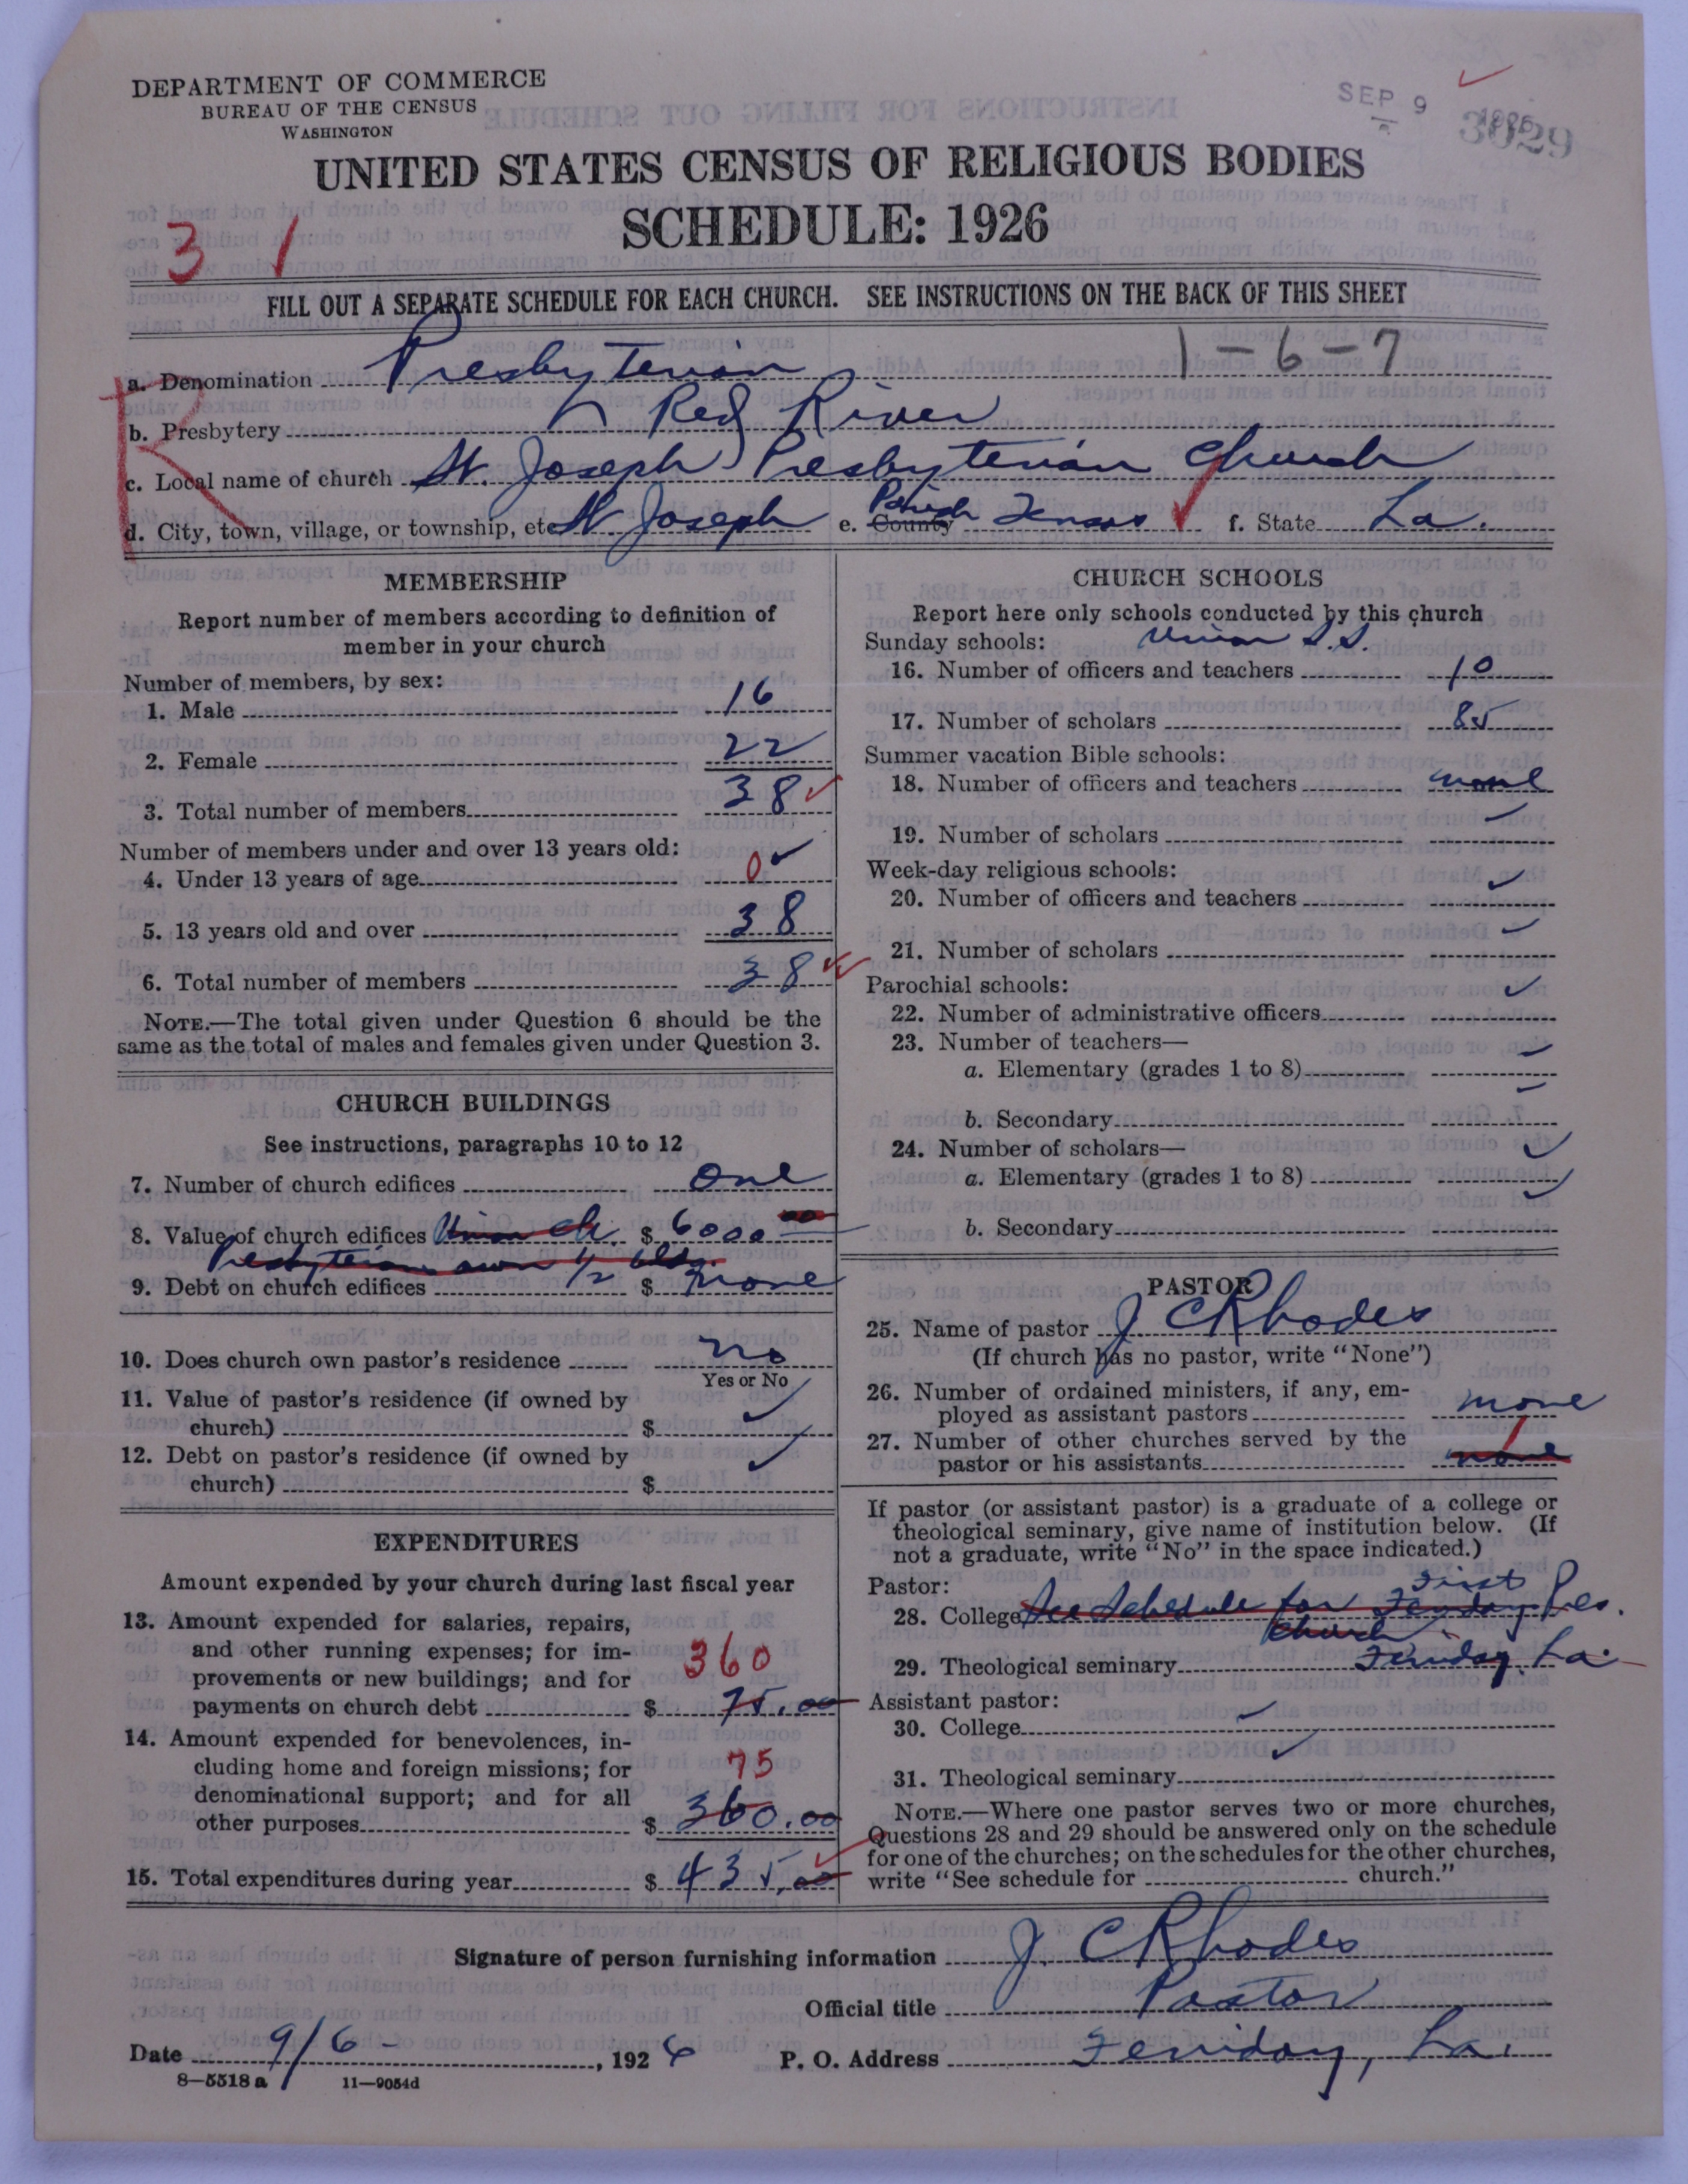 DEPARTMENT OF COMMERCE
BUREAU OF THE CENSUS
WASHINGTON
SEP 9 1926
3029
UNITED STATES CENSUS OF RELIGIOUS BODIES
SCHEDULE: 1926
3 1
FILL OUT A SEPARATE SCHEDULE FOR EACH CHURCH. SEE INSTRUCTIONS ON THE BACK OF THIS SHEET
1-6-7
R
a. Denomination Presbyterian
b. Presbytery Red River
c. Local name of church St. Joseph Presbyterian Church
d. City, town, village, or township, etc. St Joseph e. County Parish Tensas f. State La.
MEMBERSHIP
Report number of members according to definition of
member in your church
Number of members, by sex:
1. Male 16
2. Female 22
3. Total number of members 38
Number of members under and over 13 years old:
4. Under 13 years of age 0
5. 13 years old and over 38
6. Total number of members 38
NOTE.—The total given under Question 6 should be the
same as the total of males and females given under Question 3.
CHURCH BUILDINGS
See instructions, paragraphs 10 to 12
7. Number of church edifices one
8. Value of church edifices Union Ch $ 6000 00
Presbyterians own 1/2 bldg.
9. Debt on church edifices $ none
10. Does church own pastor's residence no
Yes or No
11. Value of pastor's residence (if owned by
church) $
12. Debt on pastor's residence (if owned by
church) $
EXPENDITURES
Amount expended by your church during last fiscal year
13. Amount expended for salaries, repairs,
and other running expenses; for im-
provements or new buildings; and for 360
payments on church debt $ 75.00
14. Amount expended for benevolences, in-
cluding home and foreign missions; for 75
denominational support; and for all
other purposes $ 360.00
15. Total expenditures during year $ 435.00
CHURCH SCHOOLS
Report here only schools conducted by this church
Sunday schools: Union S.S.
16. Number of officers and teachers 10
17. Number of scholars 85
Summer vacation Bible schools:
18. Number of officers and teachers none
19. Number of scholars
Week-day religious schools:
20. Number of officers and teachers
21. Number of scholars
Parochial schools:
22. Number of administrative officers
23. Number of teachers—
a. Elementary (grades 1 to 8)
b. Secondary
24. Number of scholars—
a. Elementary (grades 1 to 8)
b. Secondary
PASTOR
25. Name of pastor J C Rhodes
(If church has no pastor, write "None")
26. Number of ordained ministers, if any, em-
ployed as assistant pastors none
27. Number of other churches served by the 1
pastor or his assistants none
If pastor (or assistant pastor) is a graduate of a college or
theological seminary, give name of institution below. (If
not a graduate, write "No" in the space indicated.)
Pastor: First
28. College See Schedule for Ferriday Pres.
Church
29. Theological seminary Ferriday, La.
Assistant pastor:
30. College
31. Theological seminary
NOTE.—Where one pastor serves two or more churches,
Questions 28 and 29 should be answered only on the schedule
for one of the churches; on the schedules for the other churches,
write "See schedule for church."
Signature of person furnishing information J. C Rhodes
Official title Pastor
Date 9/6-, 1926 P. O. Address Ferriday, La.
8—5518 a 11—9054d